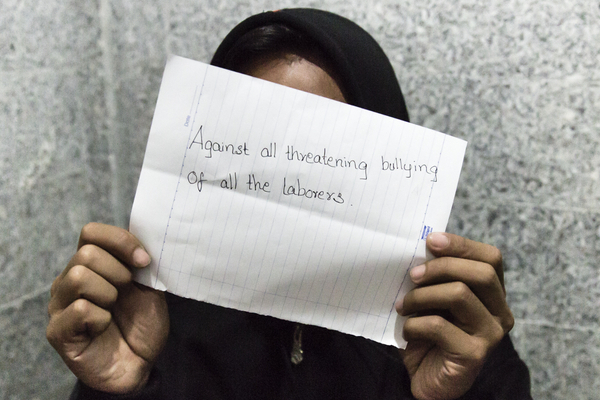 Against all threatening bullying
Of all the Laborers.